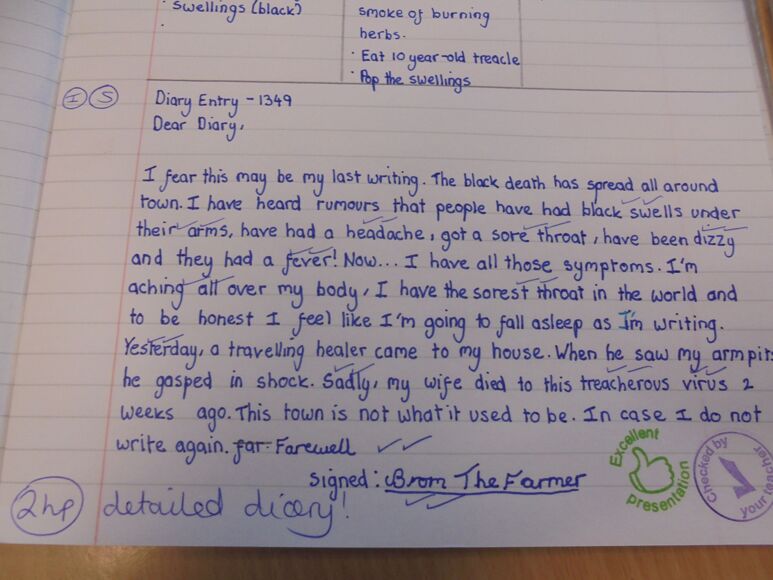 · swellings (black)
·
smoke of burning
herbs.
· Eat 10 year-old treacle
· Pop the swellings
I S
Diary Entry - 1349
Dear Diary,
I fear this may be my last writing. The black death has spread all around
town. I have heard rumours that people have had black swells under
their arms, have had a headache, got a sore throat, have been dizzy
and they had a fever! Now... I have all those symptoms. I'm
aching all over my body, I have the sorest throat in the world and
to be honest I feel like I'm going to fall asleep as I'm writing.
Yesterday, a travelling healer came to my house. When he saw my armpits
he gasped in shock. Sadly, my wife died to this treacherous virus 2
weeks ago. This town is not what it used to be. In case I do not
write again. far Farewell
signed: Brom The Farmer
Excellent presentation
Checked by your teacher
2hp detailed diary!